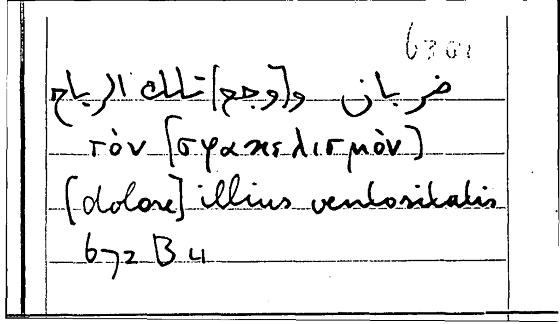 ضربان و[وجع] تلك الرياح
τὸν [σφακελισμὸν]
[dolore] illius ventositatis
672 B 4